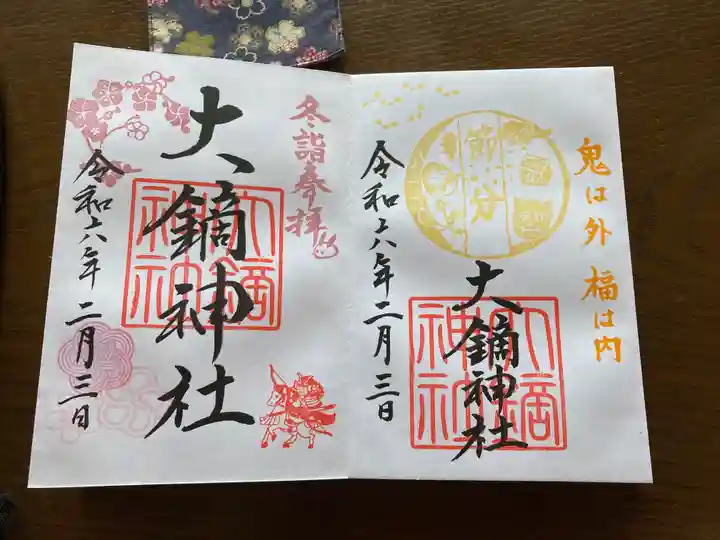 鬼は外 福は内
節分
大鏑神社
大鏑神社
令和六年二月三日
冬詣奉拝
大鏑神社
大鏑神社
令和六年二月三日